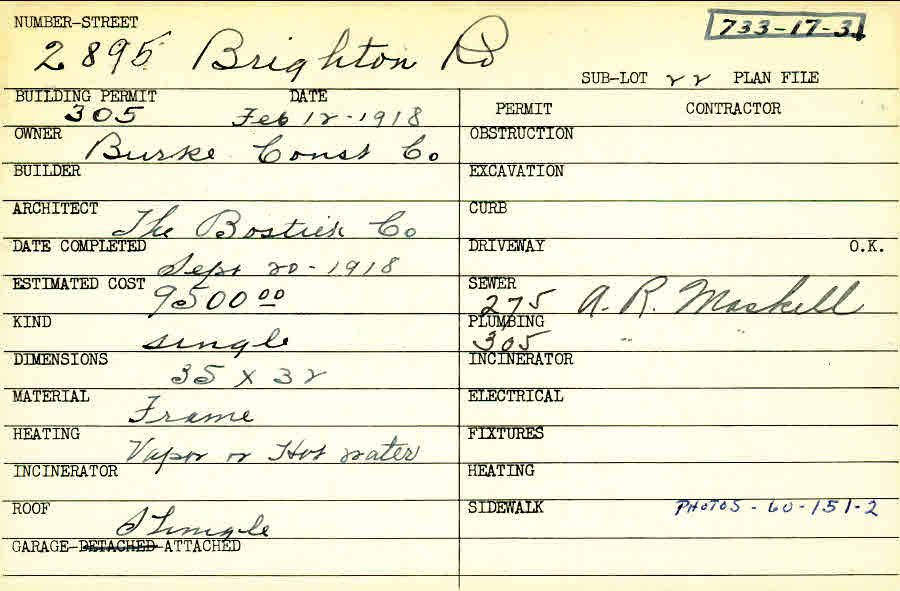 NUMBER-STREET
733-17-31
2895 Brighton Rd
SUB-LOT 22 PLAN FILE
BUILDING PERMIT DATE
305 Feb 12-1918
PERMIT CONTRACTOR
OWNER Burke Const Co
OBSTRUCTION
BUILDER
EXCAVATION
ARCHITECT The Bostick Co
CURB
DATE COMPLETED Sept 20-1918
DRIVEWAY O.K.
ESTIMATED COST 9500 00
SEWER 275 A. R. Maskell
KIND single
PLUMBING 305 " "
DIMENSIONS 35 x 32
INCINERATOR
MATERIAL Frame
ELECTRICAL
HEATING Vapor or Hot water
FIXTURES
INCINERATOR
HEATING
ROOF Shingle
SIDEWALK PHOTOS - 60-151-2
GARAGE-DETACHED-ATTACHED